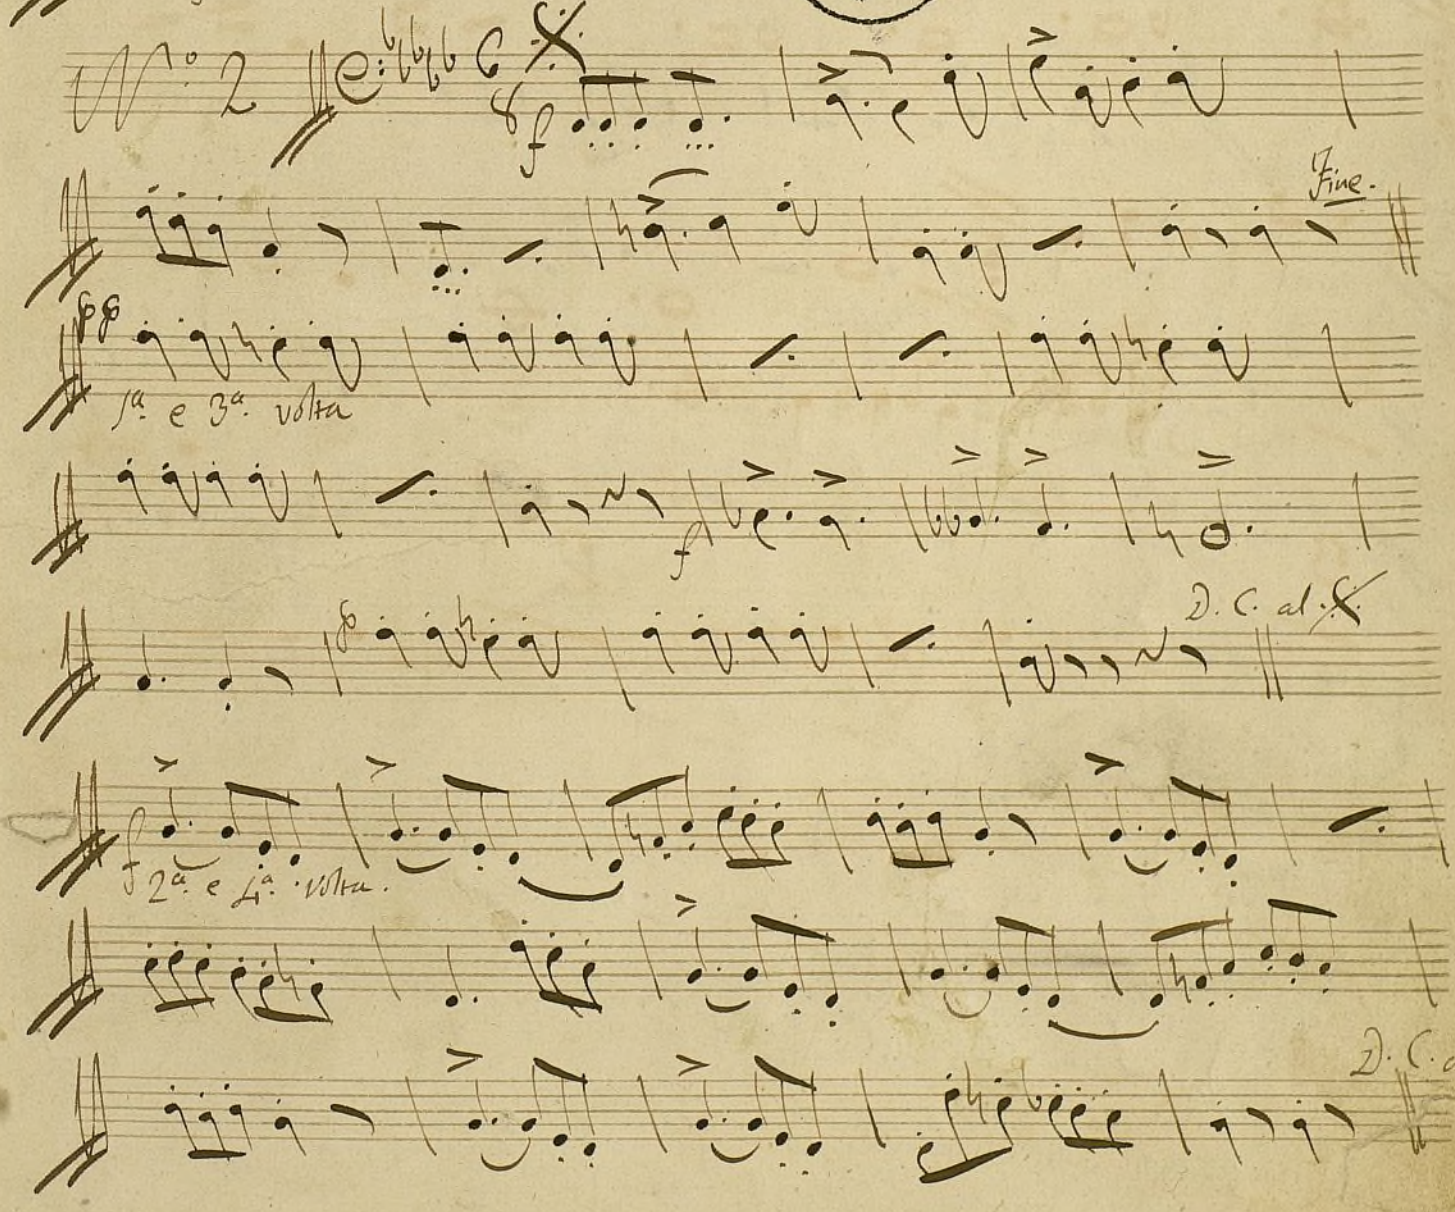 Nº. 2 6 8 f
Fine.
pp
1ª. e 3ª. volta
f
p D. C. al
f 2ª. e 4ª. volta.
D. C.